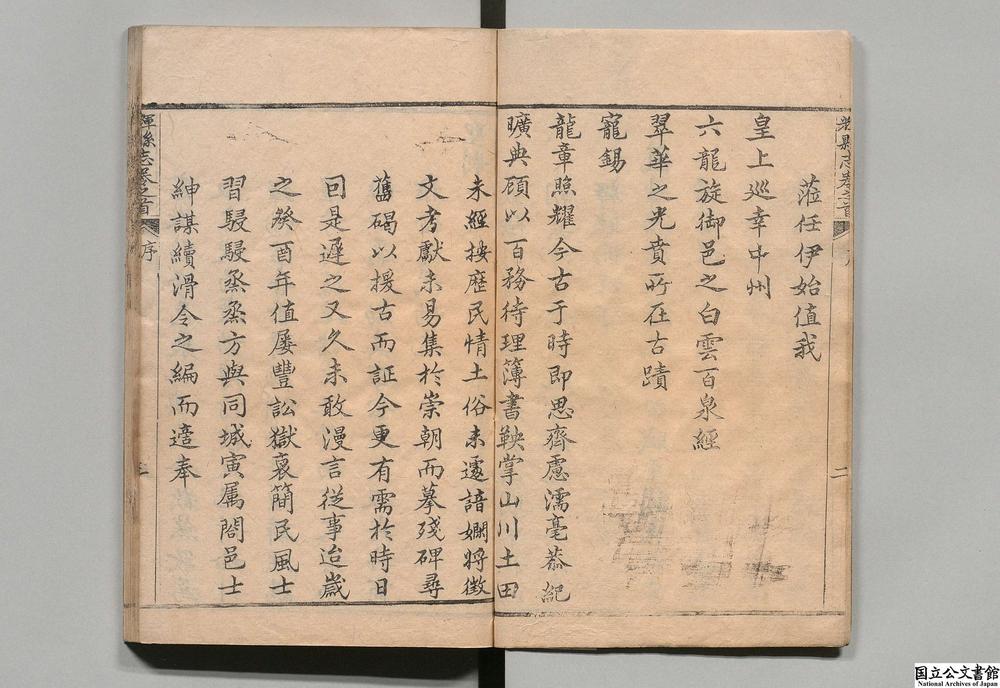 蒞任伊始值我
皇上巡幸中州
六龍旋御邑之白雲百泉經
翠華之光賁所在古蹟
寵錫
龍章照耀今古于時即思齊慮濡毫恭紀
曠典顧以百務待理簿書鞅掌山川土田
二
未經按歷民情土俗未遽諳嫻將徵
文考獻未易集於崇朝而摹殘碑尋
舊碣以援古而証今更有需於時日
回是遲之又久未敢漫言從事迨歲
之癸酉年值屢豐訟獄裒簡民風士
習駸駸烝烝方與同城寅属閤邑士
紳謀續滑令之編而適奉
輝縣志卷之首
序
三
国立公文書館
National Archives of Japan